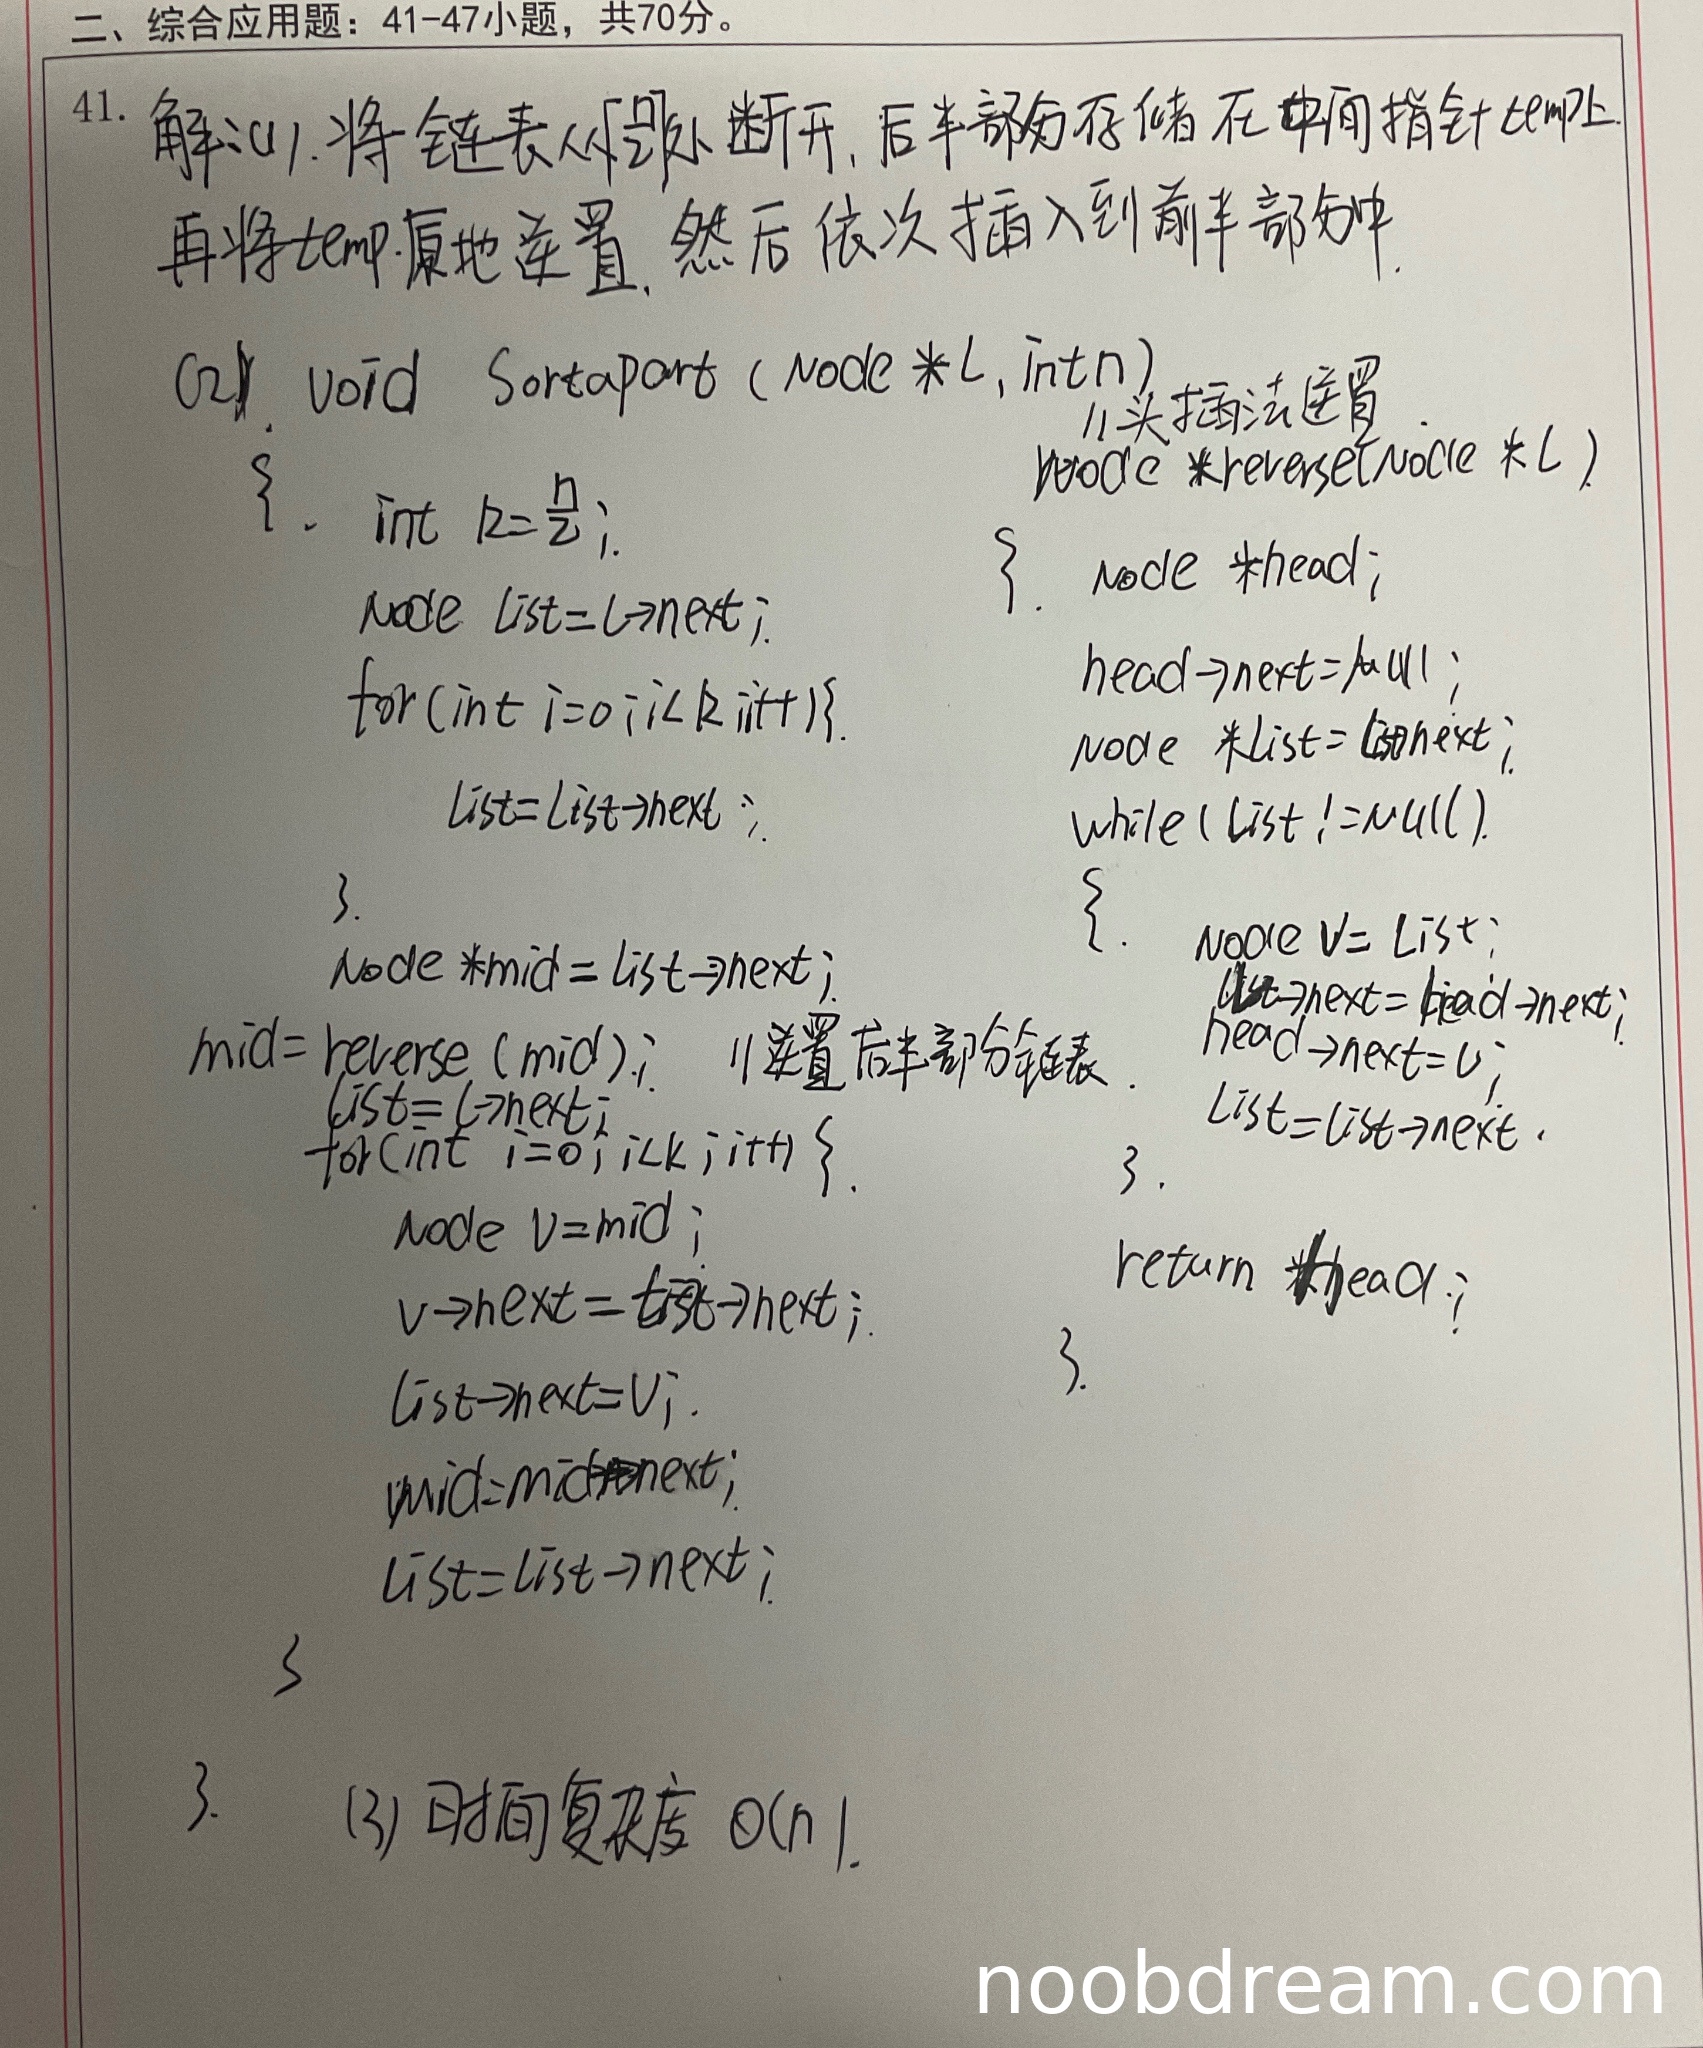 二、综合应用题：41-47小题，共70分。
41. 解：(1). 将链表从⌈n/2⌉处断开，后半部分存储在中间指针temp上.
再将temp.原地逆置，然后依次插入到前半部分中.
(2). void Sortapart (Node *L, int n)
{. int k=n/2;
Node List=L->next;
for(int i=0;i<k;i++){.
List=List->next;
}.
Node *mid=List->next;
mid=reverse(mid); //逆置后半部分链表.
List=L->next;
for(int i=0;i<k;i++){.
Node V=mid;
V->next=List->next;
List->next=V;
mid=mid->next;
List=List->next;
}
}.
//头插法逆置.
Node *reverse(Node *L)
{. Node *head;
head->next=Null;
Node *List=next;
while(List!=Null)
{. Node V=List;
List->next=head->next;
head->next=V;
List=List->next.
}.
return head;
}.
(3) 时间复杂度 O(n).
noobdream.com